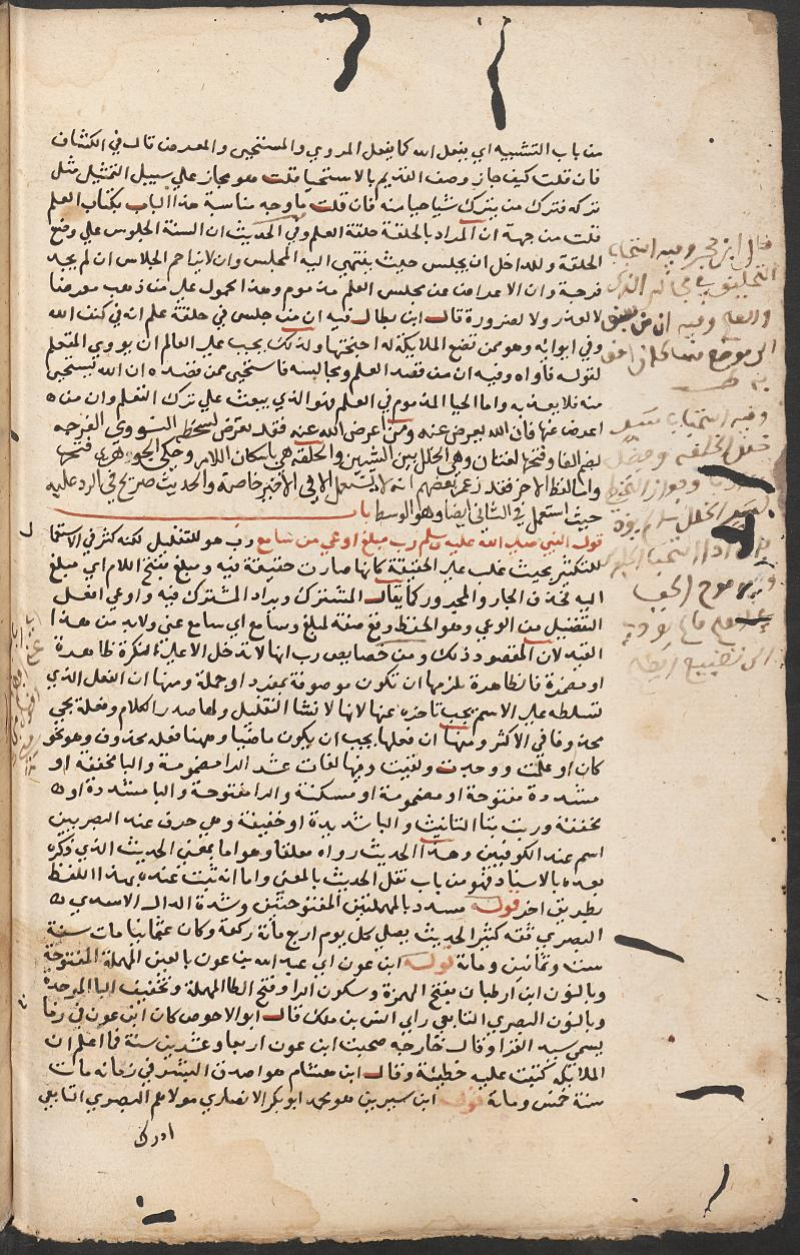 من باب التشبيه اي يفعل الله كما يفعل المروي والمستحيى والمعرض قال في الكشاف
فان قلت كيف جاز وصف القديم بالاستحيا قلت هو مجاز علي سبيل التمثيل مثل
تركه فترك من يترك شيا حيا منه فان قلت ما وجه مناسبة هذا الباب بكتاب العلم
قلت من جهة ان المراد بالحلقة حلقة العلم وفي الحديث ان السنة الجلوس علي وضع
الحلقة وللداخل ان يجلس حيث ينتهي اليه المجلس وان لا يزاحم الجلاس ان لم يجد
فرجة وان الاعراض عن مجلس العلم مذموم وهذا محمول علي من ذهب معرضا
لا لعذر ولا لضرورة قال ابن بطال فيه ان من جلس في حلقة علم انه في كنف الله
وفي ايوائه وهو ممن تضع الملايكة له اجنحتها ولذلك يجب علي العالم ان يووي المتعلم
لقوله فآواه وفيه ان من قصد العلم ومجالسه فاستحيى ممن قصده ان الله يستحيى
منه فلا يعذبه واما الحيا المذموم في العلم فهو الذي يبعث علي ترك التعلم وان من
اعرض عنها فان الله يعرض عنه ومن اعرض الله عنه فقد تعرض لسخطه النووي الفرجه
بضم الفا وفتحها لغتان وهي الخلل بين الشيين والحلقه هي باسكان اللام وحكي الجوهري فتحها
واما لفظ الاخر فقد زعم بعضهم انه لا يستعمل الا في الاخير خاصة والحديث صريح في الرد عليه
حيث استعمل في الثاني ايضا وهو الوسط باب
قول النبي صلي الله عليه وسلم رب مبلغ اوعي من سامع رب هو للتقليل لكنه كثر في الاستعما
للتكثير بحيث غلب علي الحقيقة كانها صارت حقيقة فيه ومبلغ بفتح اللام اي مبلغ
اليه فحذف الجار والمجرور كما يقال المشترك ويراد المشترك فيه واوعي افعل
التفضيل من الوعي وهو الحفظ وقع صفة لمبلغ وسامع اي سامع عني ولابد من هذا
القيد لان المقصود ذلك ومن خصايص رب انها لا تدخل الا علي نكرة ظاهرة
او مضمرة فالظاهرة يلزمها ان تكون موصوفة بمفرد او جملة ومنها ان الفعل الذي
تسلطه علي الاسم يجب تاخره عنها لانها لانشا التقليل ولها صدر الكلام وفعله يجي
محذوفا في الاكثر ومنها ان فعلها يجب ان يكون ماضيا وههنا فعله محذوف وهو نحو
كان او علمت ووجدت ولقيت وفيها لغات عشر الرا مضمومة والبا مخففة او
مشددة مفتوحة او مضمومة او مسكنة والرا مفتوحة والبا مشددة او
مخففة وربت بتا التانيث والبا شديدة او خفيفة وهي حرف عند البصريين
اسم عند الكوفيين وهذا الحديث رواه معلقا وهو اما بمعني الحديث الذي ذكره
بعده بالاسناد فهو من باب نقل الحديث بالمعني واما انه ثبت عنده بهذا اللفظ
بطريق اخر قوله مسدد بالمهملتين المفتوحتين وشدة الدال الاسدي
البصري ثقه كثير الحديث يصلي كل يوم اربع مائة ركعة وكان عثمانيا مات سنة
ست وثمانين ومائة قوله ابن عون اي عبد الله بن عون بالعين المهملة المفتوحة
وبالنون ابن ارطبان بفتح الهمزة وسكون الرا وفتح الطا المهملة وتخفيف البا الموحدة
وبالنون البصري التابعي راي انس بن ملك قال ابو الاحوص كان ابن عون في زمانه
يسمي سيد القرا وقال خارجه صحبت ابن عون اربعا وعشرين سنة فما اعلم ان
الملايكه كتبت عليه خطيئة وقال ابن هشام هو اصدق البشر في زمانه مات
سنة خمس ومائة قوله ابن سيرين هو محمد ابو بكر الانصاري مولاهم البصري التابعي
ادرك
قال ابن حجر وفيه استحباب
التحليق في مجالس الذكر
والعلم وفيه ان من سبق
الى موضع منها كان احق
به
وفيه استحباب سد
خلل الحلقه